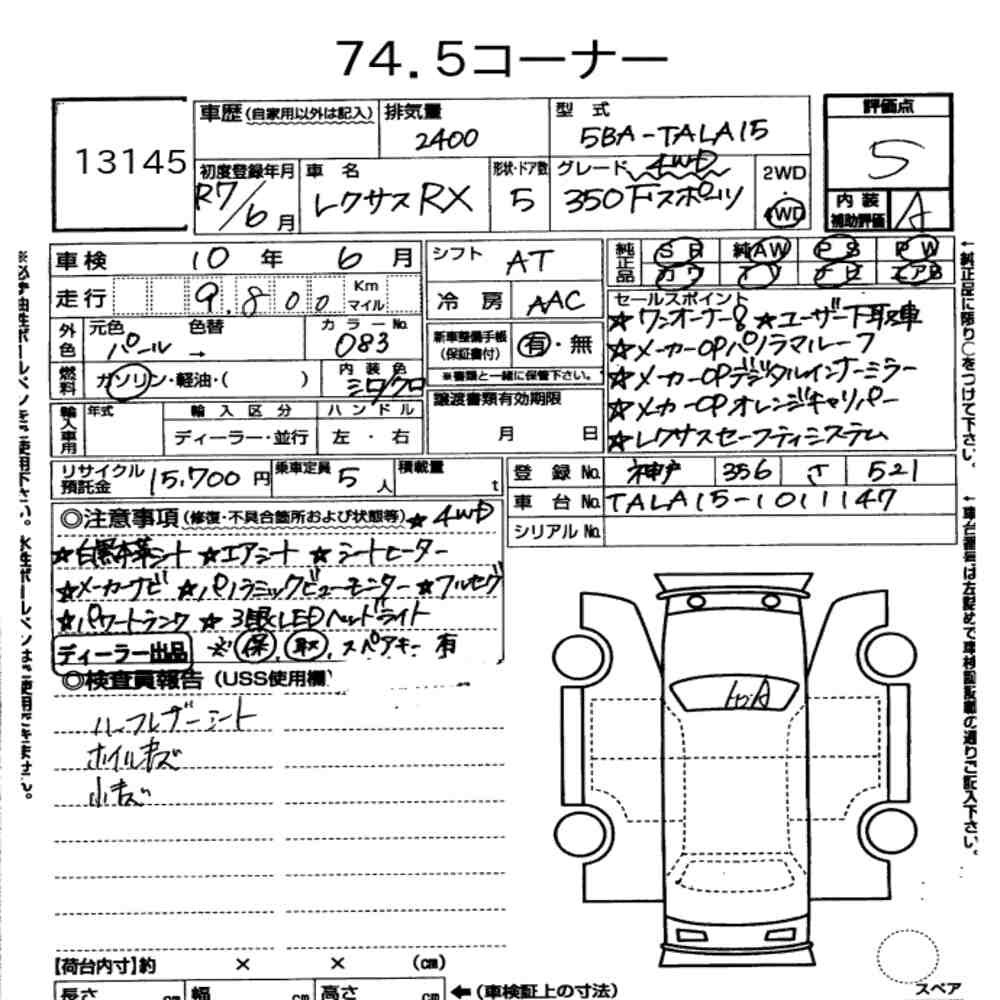 74.5コーナー
13145
車歴(自家用以外は記入) 排気量 型式
2400 5BA-TALA15
初度登録年月 車名 形状・ドア数 グレード 4WD
R7/6月 レクサスRX 5 350Fスポーツ
2WD
・
4WD
評価点
S
内装
補助評価 A
車検 10年 6月
走行 9,800 Km
マイル
外色 元色 色替 カラーNo.
パール → 083
燃料 ガソリン・軽油・( ) 内装色 シロ/クロ
輸入車用 年式 輸入区分 ハンドル
ディーラー・並行 左・右
シフト AT
冷房 AAC
新車整備手帳
(保証書付) 有・無
※書類と一緒に保管下さい。
譲渡書類有効期限
月 日
純正品 SR 純AW PS PW
カワ TV ナビ エアB
セールスポイント
★ワンオーナー8 ★ユーザー下取車
★メーカーOPパノラマルーフ
★メーカーOPデジタルインナーミラー
★メーカーOPオレンジキャリパー
★レクサスセーフティシステム
リサイクル
預託金 15,700円 乗車定員 5人 積載量 t
登録No. 神戸 356 さ 521
車台No. TALA15-1011147
シリアルNo.
◎注意事項(修復・不具合箇所および状態等) ★4WD
★白黒本革シート ★エアシート ★シートヒーター
★メーカーナビ ★パノラミックビューモニター ★フルセグ
★パワートランク ★3眼LEDヘッドライト
ディーラー出品 ※保 取 スペアキー有
◎検査員報告(USS使用欄)
ハーフレザーシート
ホイルキズ
小キズ
トビA
【荷台内寸】約 × × (cm)
長さ cm 幅 cm 高さ cm ←(車検証上の寸法)
スペア
※必ず油性ボールペンをご使用下さい。水性ボールペンはご使用できません。
←純正品に限り○をつけて下さい。
←車台番号は左詰めで車検証記載の通りご記入下さい。